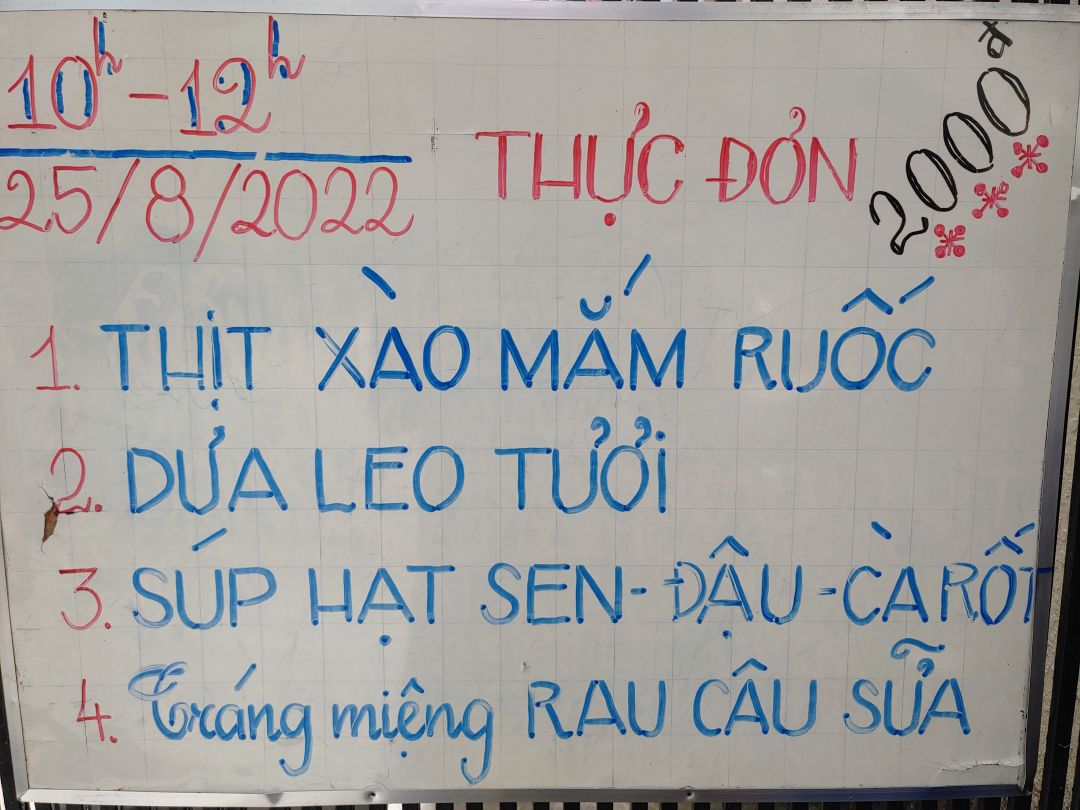 10h - 12h
25/8/2022
THỰC ĐƠN
2000đ
1. THỊT XÀO MẮM RUỐC
2. DƯA LEO TƯƠI
3. SÚP HẠT SEN - ĐẬU - CÀ RỐT
4. Tráng miệng RAU CÂU SỮA